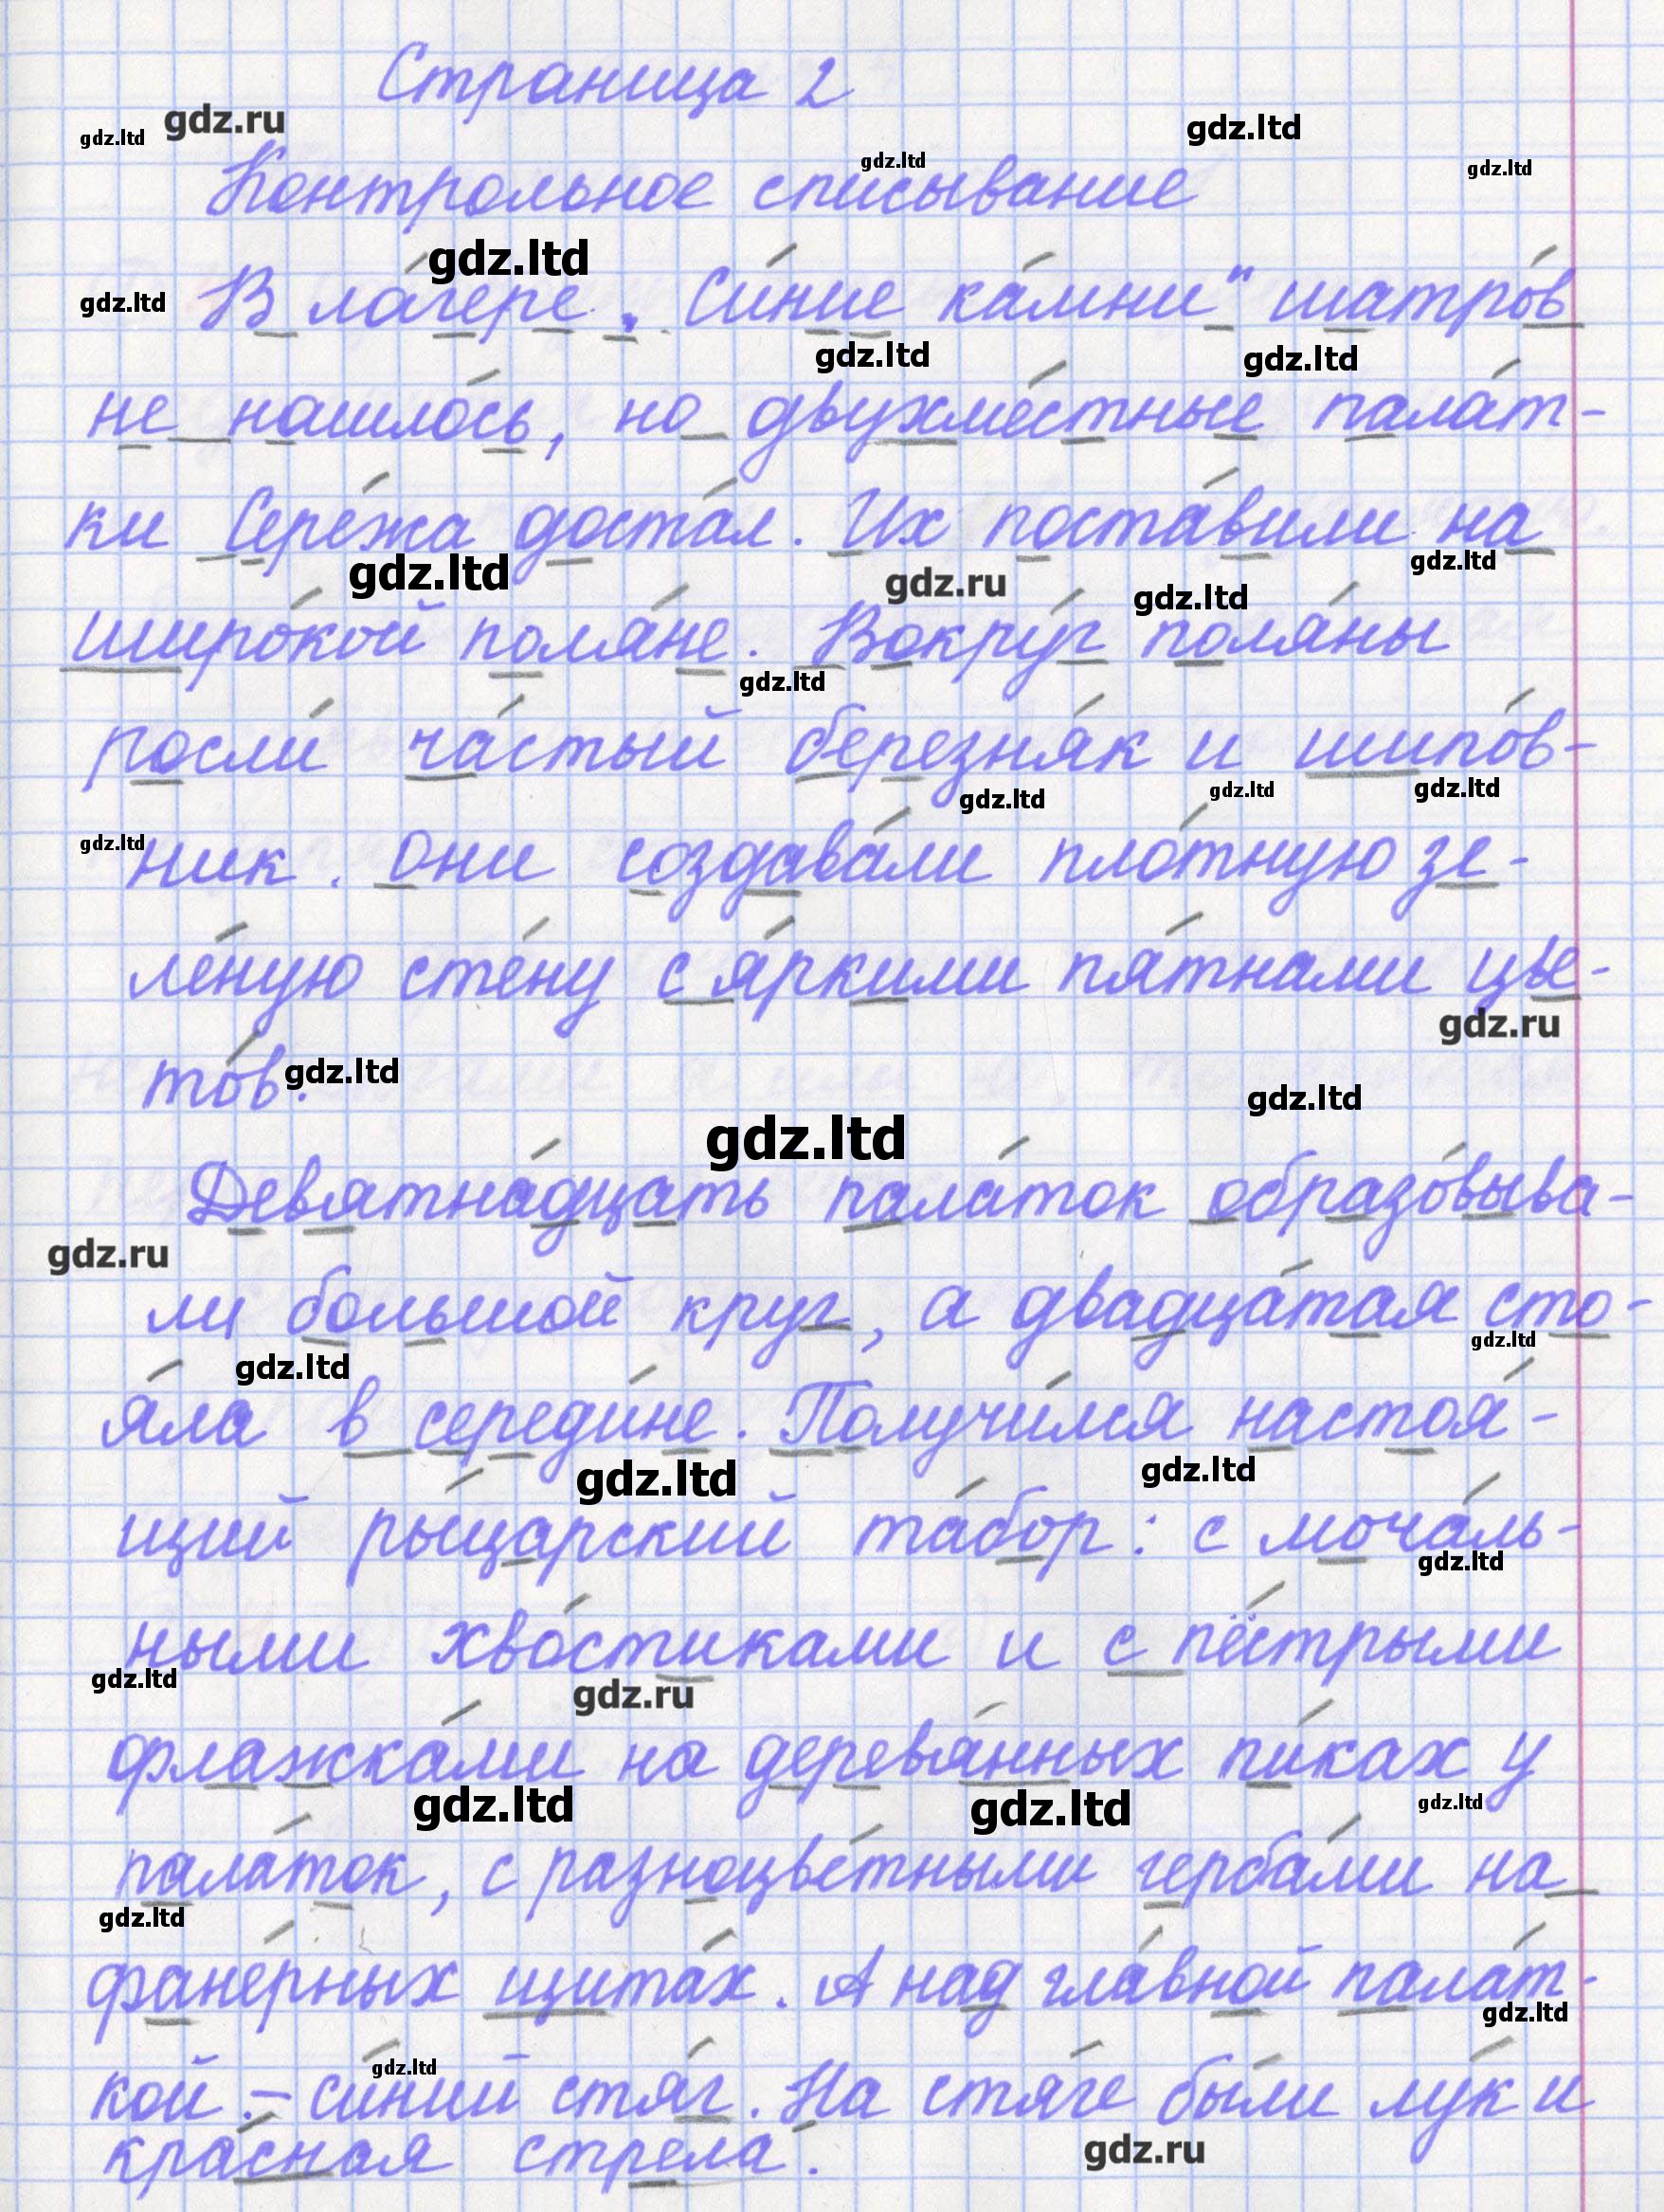 Страница 2
gdz.ru
gdz.ltd
gdz.ltd
gdz.ltd
gdz.ltd
Контрольное списывание
gdz.ltd
gdz.ltd
В лагере „Синие камни" шатров
gdz.ltd
gdz.ltd
не нашлось, но двухместные палат-
ки Сережа достал. Их поставили на
gdz.ltd
gdz.ru
gdz.ltd
gdz.ltd
широкой поляне. Вокруг поляны
gdz.ltd
росли частый березняк и шипов-
gdz.ltd
gdz.ltd
gdz.ltd
gdz.ltd
ник. Они создавали плотную зе-
леную стену с яркими пятнами цве-
gdz.ru
тов.
gdz.ltd
gdz.ltd
gdz.ltd
Девятнадцать палаток образовыва-
gdz.ru
ли большой круг, а двадцатая сто-
gdz.ltd
gdz.ltd
яла в середине. Получился настоя-
gdz.ltd
gdz.ltd
щий рыцарский табор: с мочаль-
gdz.ltd
ными хвостиками и с пёстрыми
gdz.ltd
gdz.ru
флажками на деревянных пиках у
gdz.ltd
gdz.ltd
gdz.ltd
палаток, с разноцветными гербами на
gdz.ltd
фанерных щитах. А над главной палат-
gdz.ltd
gdz.ltd
кой - синий стяг. На стяге были лук и
красная стрела.
gdz.ru